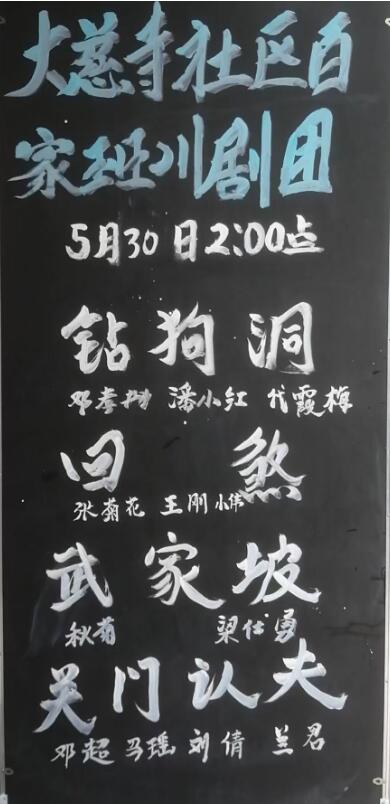 大慈寺社区百
家班川剧团
5月30日2:00点
钻狗洞
邓孝树 潘小红 代霞梅
回煞
张菊花 王刚 小伟
武家坡
秋菊 梁仕勇
关门认夫
邓超 马瑶 刘倩 兰君